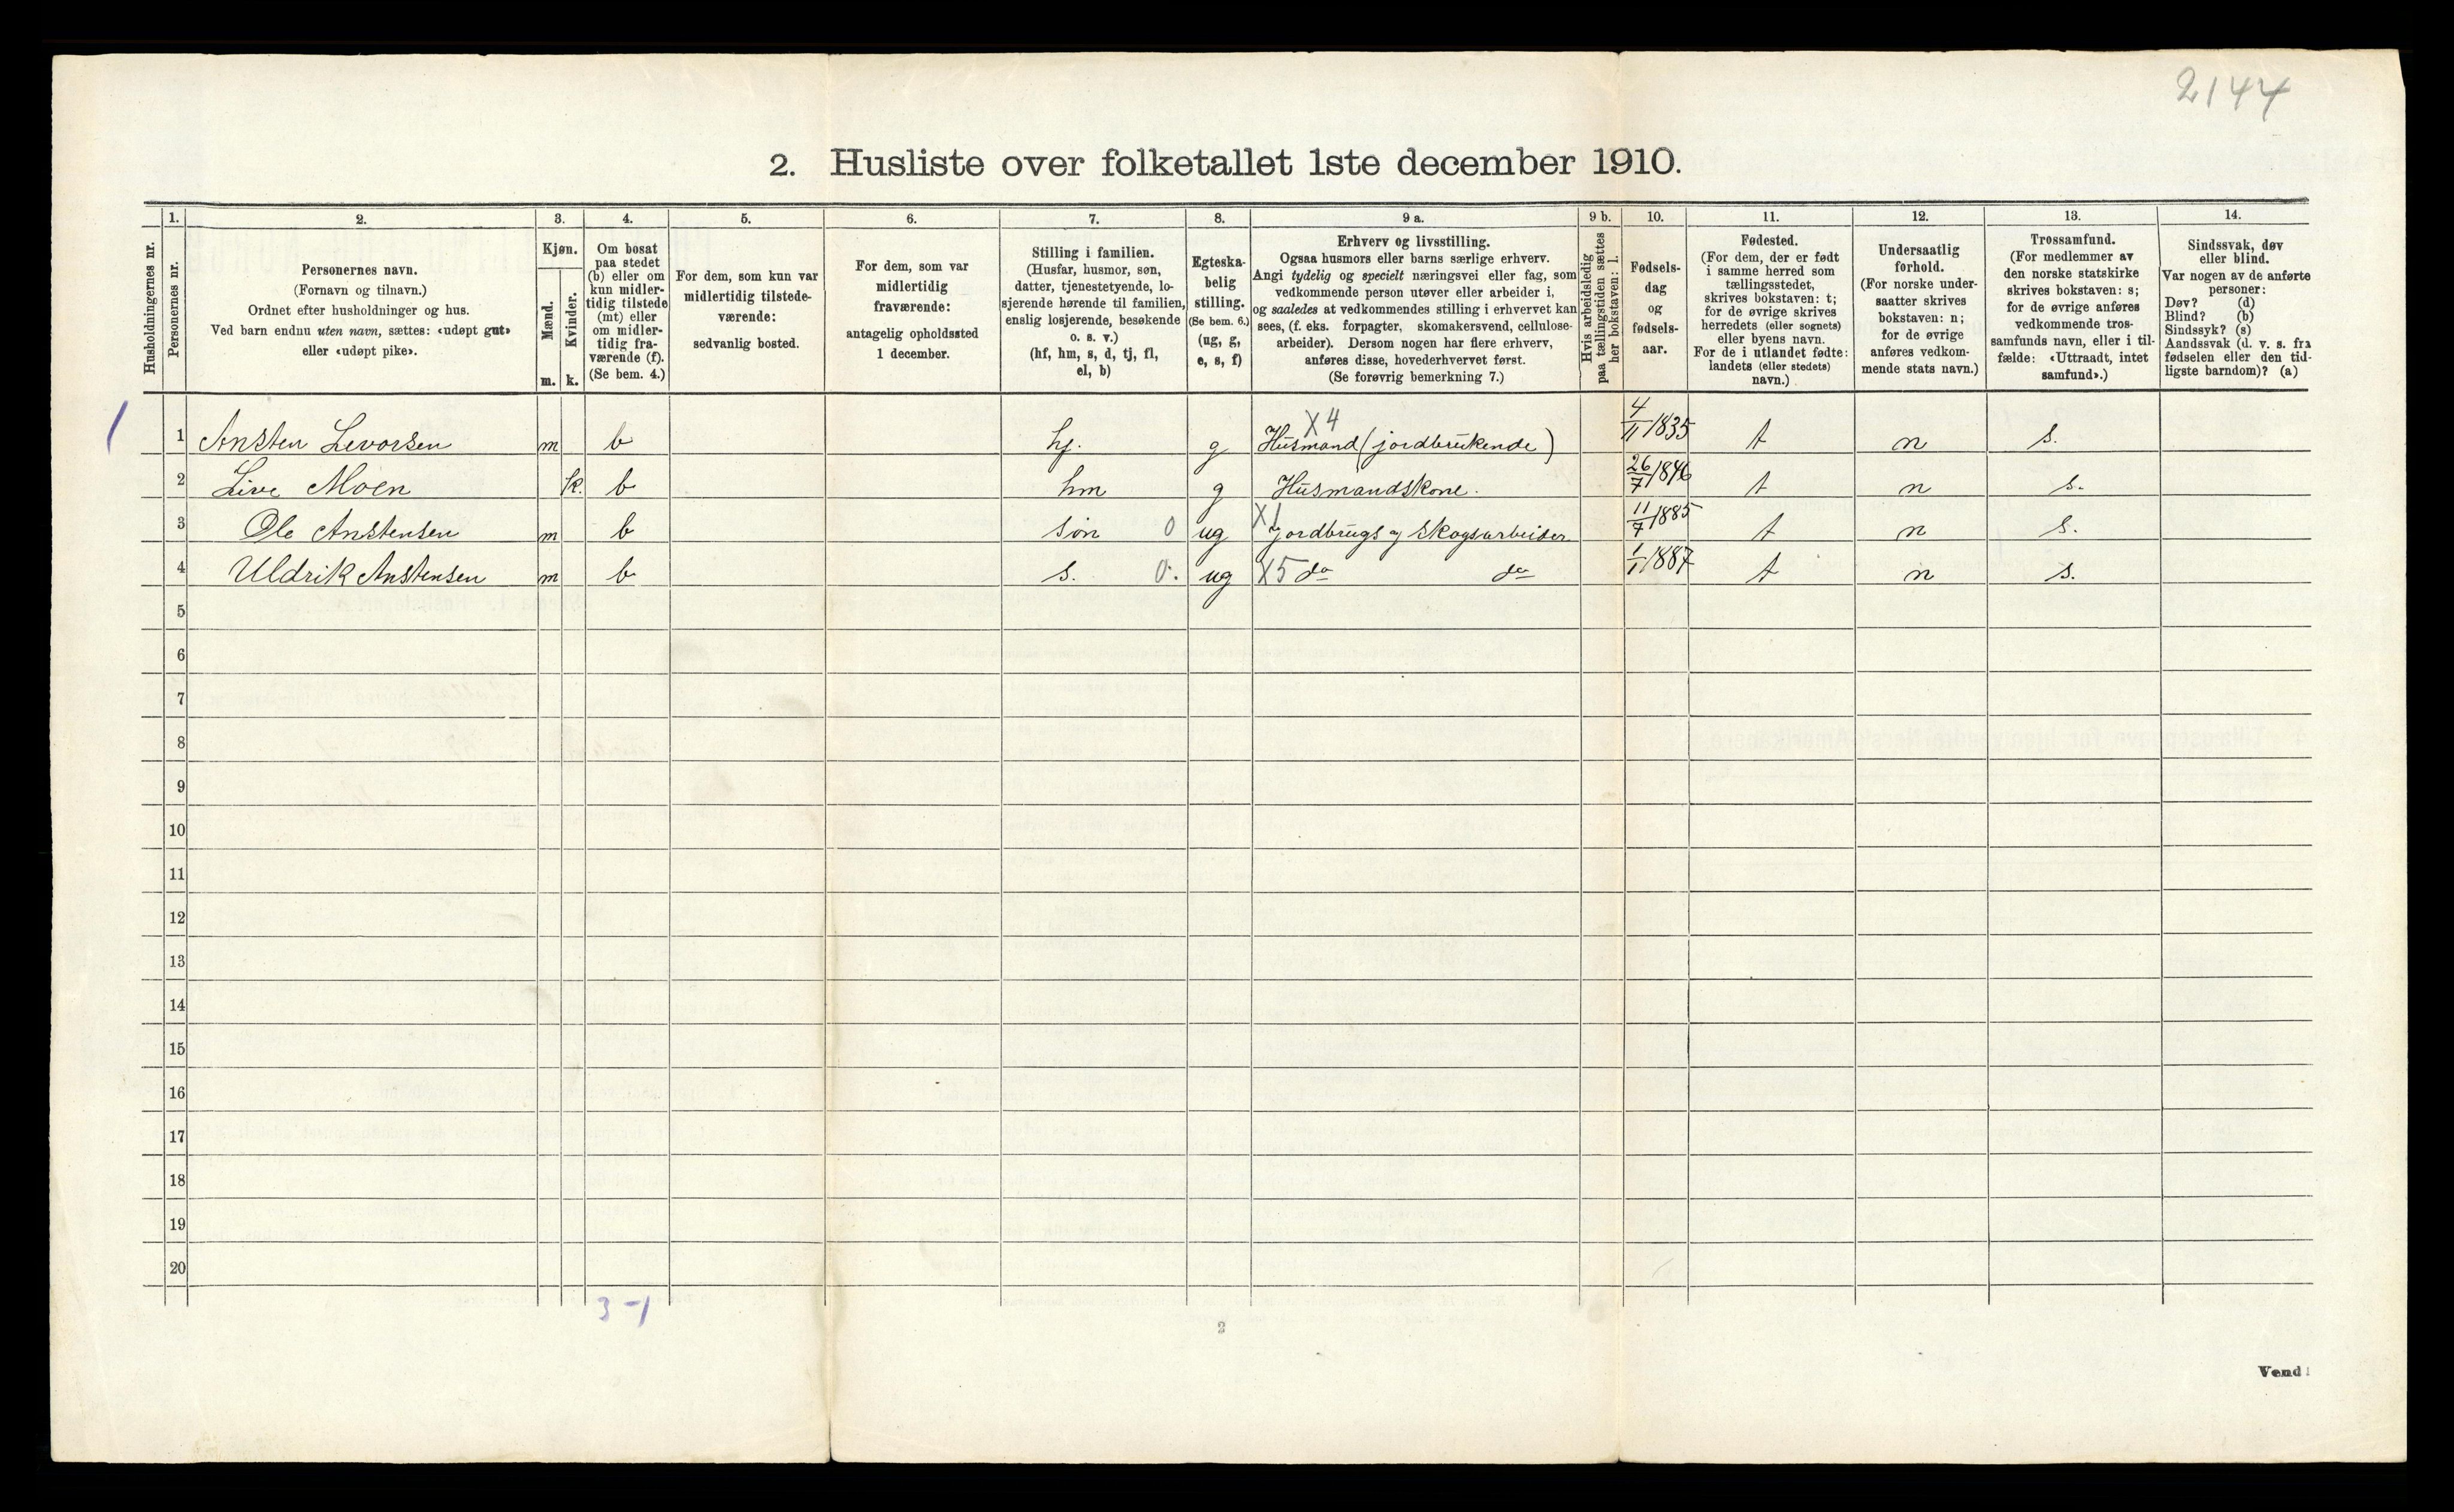 2144
2. Husliste over folketallet 1ste december 1910.
Husholdningernes nr.
1. Personernes nr.
2. Personernes navn. (Fornavn og tilnavn.) Ordnet efter husholdninger og hus. Ved barn endnu uten navn, sættes: «udøpt gut» eller «udøpt pike».
3. Kjøn. Mænd. m. Kvinder. k.
4. Om bosat paa stedet (b) eller om kun midlertidig tilstede (mt) eller om midlertidig fraværende (f). (Se bem. 4.)
5. For dem, som kun var midlertidig tilstedeværende: sedvanlig bosted.
6. For dem, som var midlertidig fraværende: antagelig opholdssted 1 december.
7. Stilling i familien. (Husfar, husmor, søn, datter, tjenestetyende, losjerende hørende til familien, enslig losjerende, besøkende o. s. v.) (hf, hm, s, d, tj, fl, el, b)
8. Egteskabelig stilling. (Se bem. 6.) (ug, g, e, s, f)
9 a. Erhverv og livsstilling. Ogsaa husmors eller barns særlige erhverv. Angi tydelig og specielt næringsvei eller fag, som vedkommende person utøver eller arbeider i, og saaledes at vedkommendes stilling i erhvervet kan sees, (f. eks. forpagter, skomakersvend, cellulosearbeider). Dersom nogen har flere erhverv, anføres disse, hovederhvervet først. (Se forøvrig bemerkning 7.)
9 b. Hvis arbeidsledig paa tællingstiden sættes her bokstaven: l.
10. Fødselsdag og fødselsaar.
11. Fødested. (For dem, der er født i samme herred som tællingsstedet, skrives bokstaven: t; for de øvrige skrives herredets (eller sognets) eller byens navn. For de i utlandet fødte: landets (eller stedets) navn.)
12. Undersaatlig forhold. (For norske undersaatter skrives bokstaven: n; for de øvrige anføres vedkommende stats navn.)
13. Trossamfund. (For medlemmer av den norske statskirke skrives bokstaven: s; for de øvrige anføres vedkommende trossamfunds navn, eller i tilfælde: «Uttraadt, intet samfund».)
14. Sindssvak, døv eller blind. Var nogen av de anførte personer: Døv? (d) Blind? (b) Sindssyk? (s) Aandssvak (d. v. s. fra fødselen eller den tidligste barndom)? (a)
1 1 Ansten Levorsen m b hf. g X4 Husmand (jordbrukende) 4/11 1835 t n s.
2 Live Moen k. b hm g Husmandskone. 26/7 1846 t n s.
3 Ole Anstensen m b søn 0 ug X1 Jordbrugs og Skogsarbeider 11/7 1885 t n s.
4 Uldrik Anstensen m b s. 0. ug X5 do do 1/1 1887 t n s.
5
6
7
8
9
10
11
12
13
14
15
16
17
18
19
20
3-1
2
Vend!